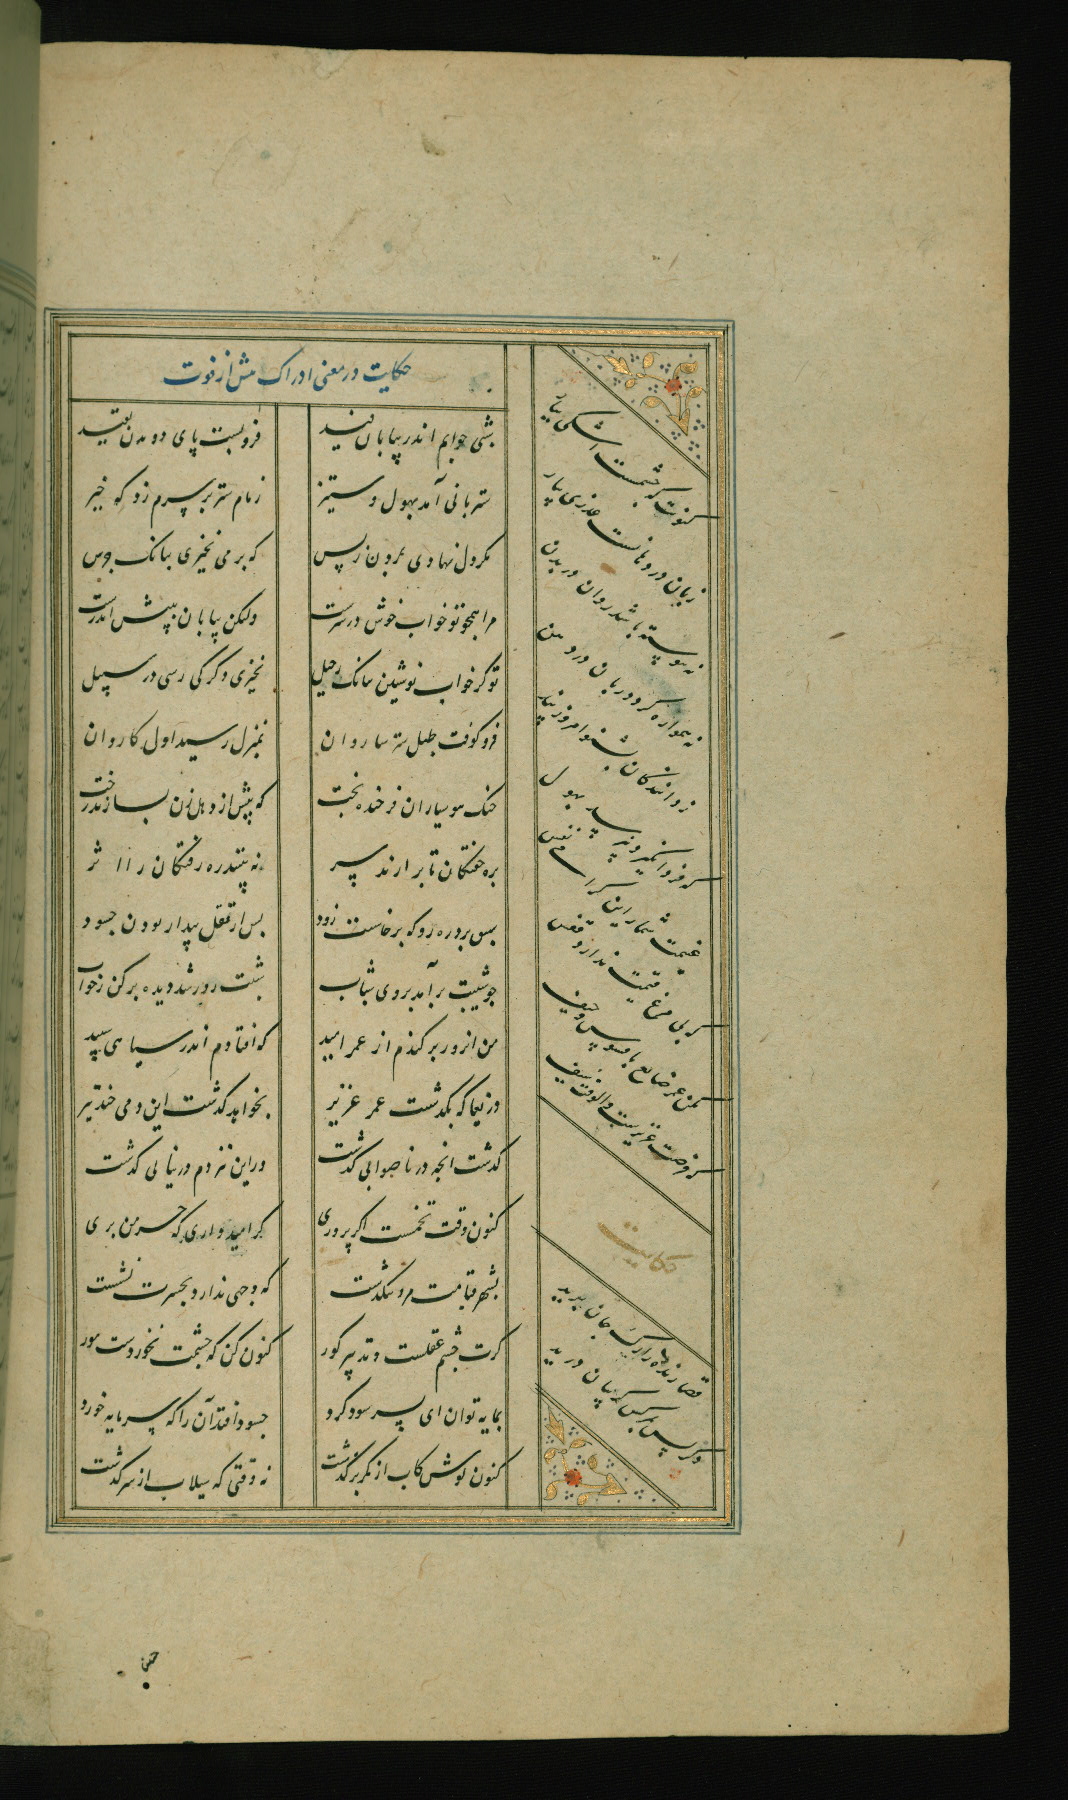 حکایت در معنی ادراک پیش از فوت
شبی خوابم اندر بیابان فید فرو بست پای دویدن بقید
شتربانی آمد بهول و ستیز زمام شتر بر سرم زد که خیز
مگر دل نهادی بمردن ز پس که بر می نخیزی ببانک جرس
مرا همچو تو خواب خوش در سرست ولیکن بیابان بپیش اندرست
تو کز خواب نوشین ببانک رحیل نخیزی دگر کی رسی در سبیل
فرو کوفت طبل شتر ساروان بمنزل رسید اول کاروان
خنک هوشیاران فرخنده بخت که پیش از دهلزن بسازند رخت
بره خفتکان تا برارند سر نه بینند ره رفتکان را اثر
سبق برد رهرو که برخاست زود پس از نقل بیدار بودن چه سود
چو شیبت در آمد بروی شباب شبت روز شد دیده برکن ز خواب
من انروز برکندم از عمر امید که افتادم اندر سیاهی سپید
دریغا که بکذشت عمر عزیز بخواهد کذشت این دمی چند نیز
کذشت انچه در ناصوابی کذشت ور این نیز هم در نیابی کذشت
کنون وقت تخمست اکر پروری کر امیدواری که خرمن بری
بشهر قیامت مرو تنکدست که وجهی ندارد بحسرت نشست
کرت چشم عقلست و تدبیر کور کنون کن که چشمت نخوردست مور
بمایه توان ای پسر سود کرد چه سود افتد آن را که سرمایه خورد
کنون کوش کاب از کمر برکذشت نه وقتی که سیلاب از سر کذشت
کنونت که چشمست اشکی ببار
زبان در دهانست عذری بیار
نه پیوسته باشد روان در بدن
نه همواره کردد زبان در دهن
ز دانندکان بشنو امروز پند
که فردا نکیرت پرسد بهول
غنیمت شمار این کرامی نفس
که بی مرغ قیمت ندارد قفس
مکن عمر ضایع بافسوس و حیف
که فرصت عزیزست و الوقت سیف
حکایت
قضا زنده را رک جان برید
دکر کس بمرکش کریبان درید